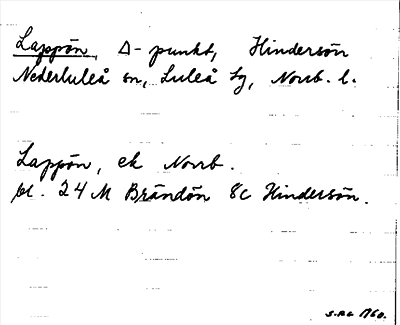 Lappön, Δ-punkt, Hindersön
Nederluleå sn, Luleå tg, Norrb. l.
Lappön, ek Norrb.
bl. 24 M Brändön 8c Hindersön.
1760.